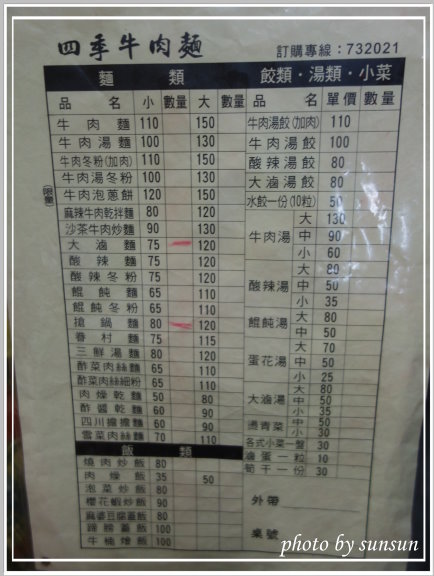 四季牛肉麵
訂購專線：732021
麵 類
品 名 小 數量 大 數量
牛肉麵 110 150
牛肉湯麵 100 130
牛肉冬粉(加肉) 110 150
牛肉湯冬粉 100 130
(限量) 牛肉泡蔥餅 120 150
麻辣牛肉乾拌麵 80 120
沙茶牛肉炒麵 90 130
大滷麵 75 120
酸辣麵 75 120
酸辣冬粉 75 120
餛飩麵 65 110
餛飩冬粉 65 110
搶鍋麵 80 120
眷村麵 75 115
三鮮湯麵 80 120
酢菜肉絲麵 65 110
酢菜肉絲細粉 65 110
肉燥乾麵 50 80
酢醬乾麵 60 90
四川擔擔麵 60 90
雪菜肉絲麵 70 110
飯 類
燒肉炒飯 80
肉燥飯 35 50
泡菜炒飯 80
櫻花蝦炒飯 90
麻婆豆腐蓋飯 80
蹄膀蓋飯 100
牛腩燴飯 100
餃類·湯類·小菜
品 名 單價 數量
牛肉湯餃(加肉) 110
牛肉湯餃 100
酸辣湯餃 80
大滷湯餃 80
水餃一份(10粒) 50
牛肉湯 大 130
中 90
小 60
酸辣湯 大 80
中 50
小 35
餛飩湯 大 80
中 50
蛋花湯 大 70
中 50
小 25
大滷湯 大 80
中 50
小 35
燙青菜 大 50
小 30
各式小菜一盤 30
滷蛋一粒 10
筍干一份 30
外帶
桌號
photo by sunsun